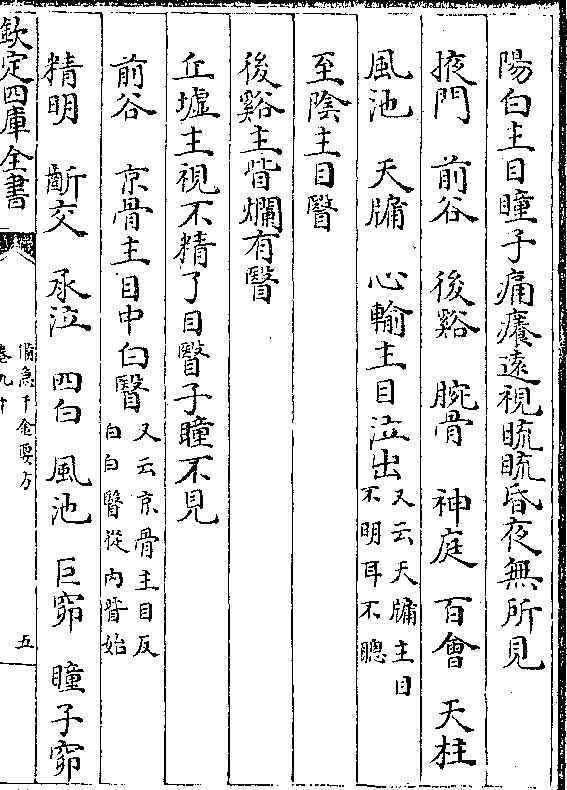 陽白主目瞳子痛癢遠視䀮䀮昏夜無所見
掖門 前谷 後谿 腕骨 神庭 百㑹 天柱
風池 天牖 心輸主目泣出又云天牖主目不明耳不聰
至隂主目翳
後谿主眥爛有翳
丘墟主視不精了目翳子瞳不見
前谷 京骨主目中白翳又云京骨主目反白白翳從内眥始
精明 齗交 承泣 四白 風池 巨窌 瞳子窌
欽定四庫全書
備急千金要方
卷九十
五